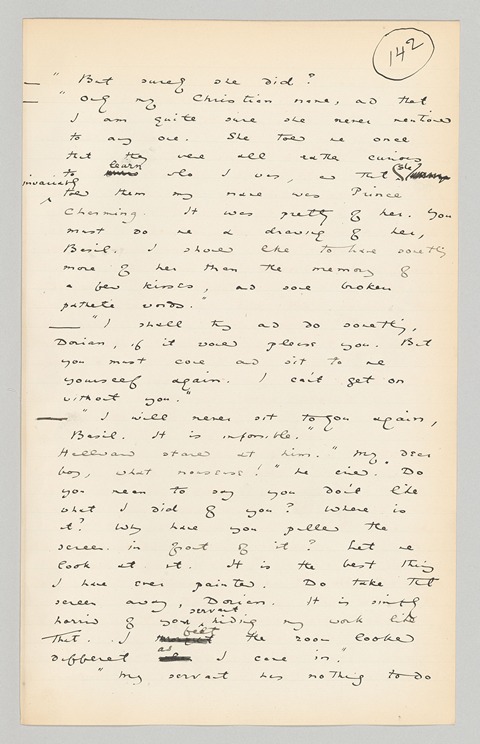 142
— " But surely she did?
— " Only my Christian name, and that
I am quite sure she never mentioned
to any one. She told me once
that they were all rather curious
to learn who I was, and that she
invariably told them my name was Prince
Charming. It was pretty of her. You
must do me a drawing of her,
Basil. I should like to have something
more of her than the memory of
a few kisses, and some broken
pathetic words."
— "I shall try and do something,
Dorian, if it would please you. But
you must come and sit to me
yourself again. I can't get on
without you."
— "I will never sit to you again,
Basil. It is impossible."
Hallward stared at him. "My dear
boy, what nonsense!" he cried. Do
you mean to say you don't like
what I did of you? Where is
it? Why have you pulled the
screen in front of it? Let me
look at it. It is the best thing
I have ever painted. Do take that
screen away, Dorian. It is simply
horrid of your servant hiding my work like
that. I felt the room looked
different as I came in."
"My servant has nothing to do